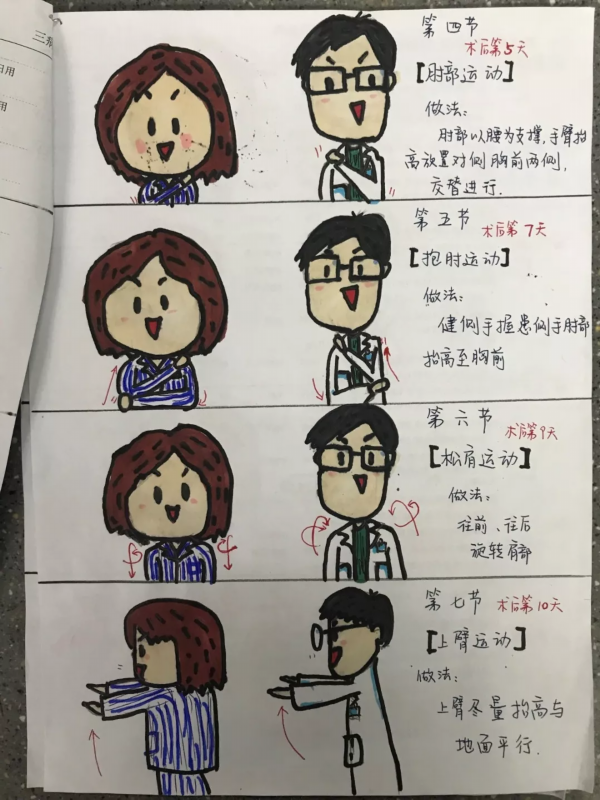 三病
日用
用
第四节
术后第5天
【肘部运动】
做法:
肘部以腰为支撑,手臂抬
高放置对侧胸前两侧,
交替进行.
第五节
术后第7天
【抱肘运动】
做法:
健侧手握患侧手肘部
抬高至胸前
第六节
术后第9天
【松肩运动】
做法:
往前、往后
旋转肩部
第七节
术后第10天
【上臂运动】
做法:
上臂尽量抬高与
地面平行.